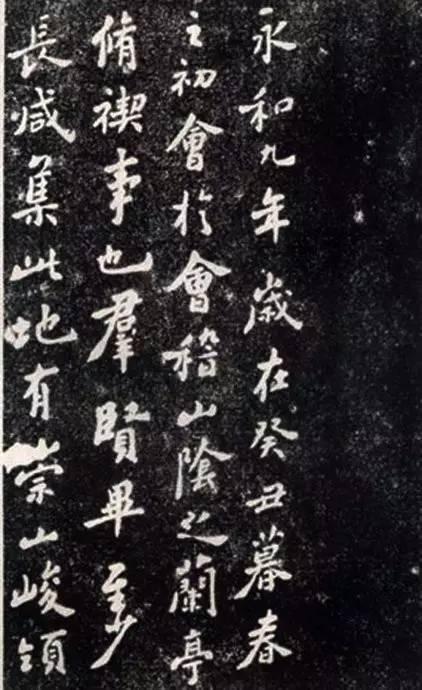 永和九年歲在癸丑暮春
之初會於會稽山陰之蘭亭
脩禊事也羣賢畢至少
長咸集此地有崇山峻領